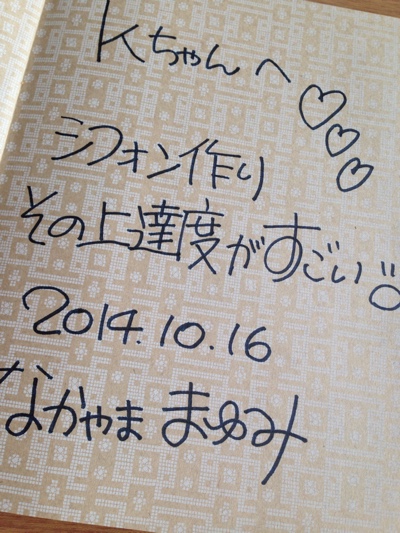 Kちゃんへ♡♡♡
シフォン作り
その上達度がすごい!!
2014.10.16
なかやま まゆみ